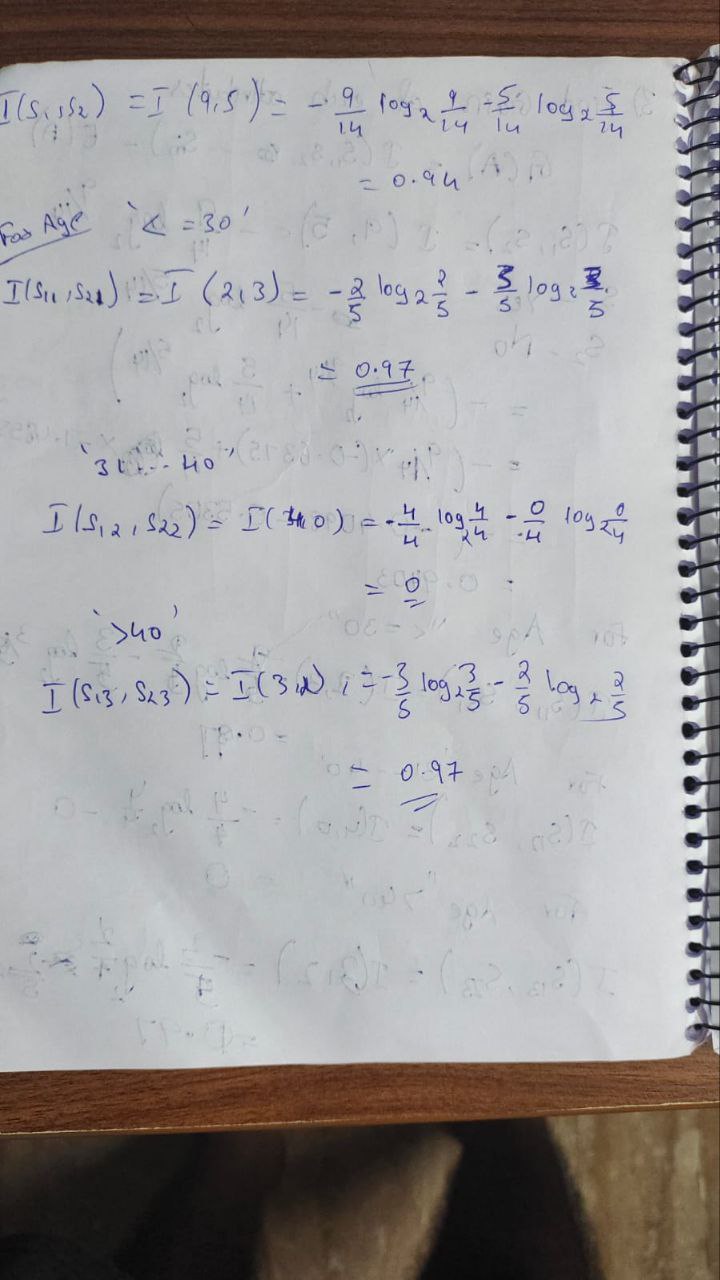 I(S₁,S₂) = I (9,5) = - 9/14 log₂ 9/14 - 5/14 log₂ 5/14
= 0.94
For Age '< =30'
I(S₁₁,S₂₁) = I (2,3) = - 2/5 log₂ 2/5 - 3/5 log₂ 3/5
= 0.97
'31... 40'
I(S₁₂, S₂₂) = I(4,0) = - 4/4 log₂ 4/4 - 0/4 log₂ 0/4
= 0
'>40'
I(S₁₃, S₂₃) = I(3,2) = - 3/5 log₂ 3/5 - 2/5 log₂ 2/5
= 0.97